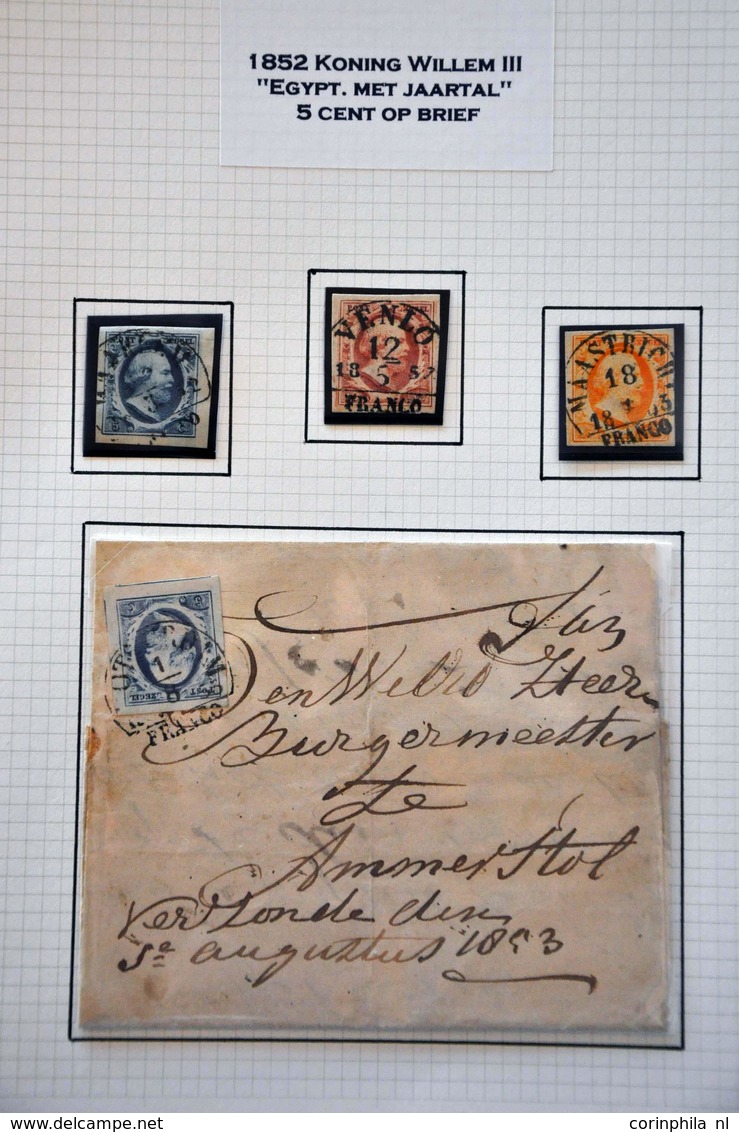 1852 KONING WILLEM III
"EGYPT. MET JAARTAL"
5 CENT OP BRIEF
VENLO
12
18 5 57
FRANCO
MAASTRICH
18
18
FRANCO
POST
ZEGEL
1
8
FRANCO
Aan
den Heer
Burgermeester
te
Ammerstol
Verzonde den
5e augustus 1853
www.delcampe.net
corinphila nl